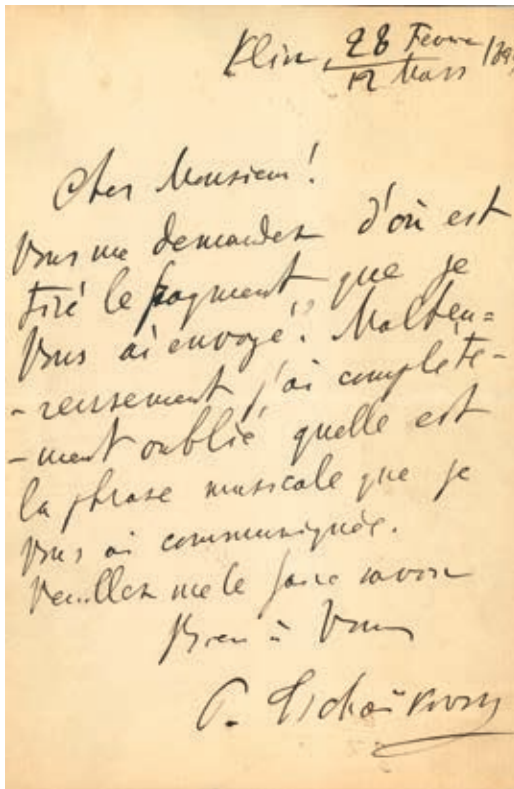 Klin, 28 Fevrier
12 Mars
Cher Monsieur!
Vous me demandez d'où est
tiré le fragment que je
Vous ai envoyé. Malheu=
-reusement j'ai complète-
-ment oublié quelle est
la phrase musicale que je
Vous ai communiquée.
Veuillez me le faire savoir
Bien à Vous
P. Tschaïkovsky